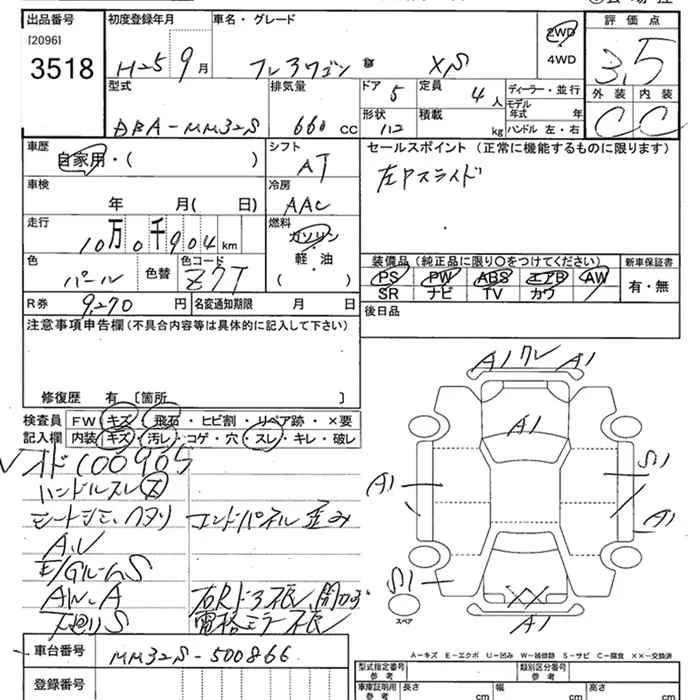 出品番号 初度登録年月 車名・グレード 評価点
[2096]
3518 H25 9月 フレアワゴン XS 2WD 4WD 3.5
型式 排気量 ドア 5 定員 4人 ディーラー・並行 外装 内装
DBA-MM32S 660 CC 形状 積載 kg モデル年式 年 ハンドル 左・右 C C
車歴 自家用・( ) シフト AT セールスポイント (正常に機能するものに限ります)
車検 年 月( 日) 冷房 AAC 左Pスライド
走行 10万0千904 km 燃料 ガソリン 軽・油 ( )
色 パール 色替 色コード Z7T
装備品(純正品に限り○をつけてください) 新車保証書
PS PW ABS エアB AW 有・無
SR ナビ TV カワ
R券 9,270 円 名変通知期限 月 日 後日品
注意事項申告欄(不具合内容等は具体的に記入して下さい)
修復歴 有 [箇所 ]
検査員 FW キズ・飛石・ヒビ割・リペア跡・×要
記入欄 内装 キズ・汚レ・コゲ・穴・スレ・キレ・破レ
ハンドルスレ
コンドパネル歪み
下廻りS
A1 A1
A1
A1 S1
A1
S1
スペア XX
A1
A-キズ E-エクボ U-凹み W-補修跡 S-サビ C-腐食 XX-交換済
車台番号 MM32S-500866
登録番号
型式指定番号 参考 類別区分番号 参考
車庫証明用 参考 長さ cm 幅 cm 高さ cm